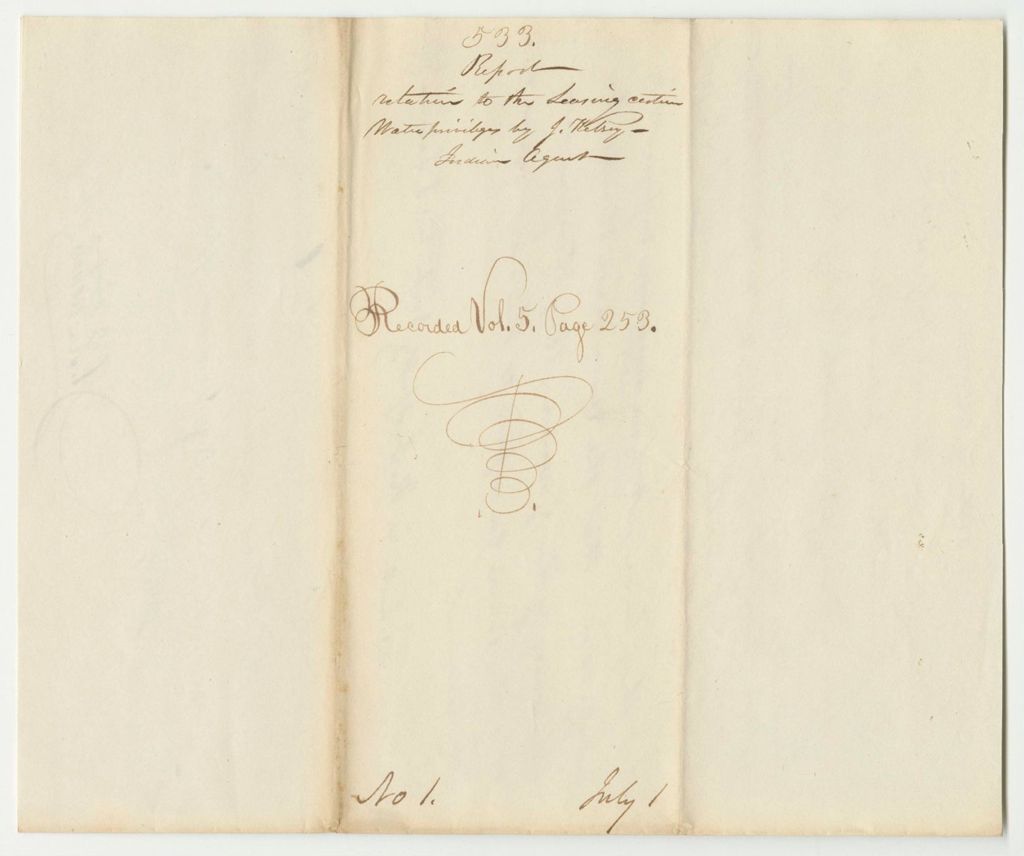 533.
Report
relation to the Leasing certain
Water privileges by J. Kelsey—
Indian Agent
Recorded Vol. 5. Page 253.
No 1.
July 1